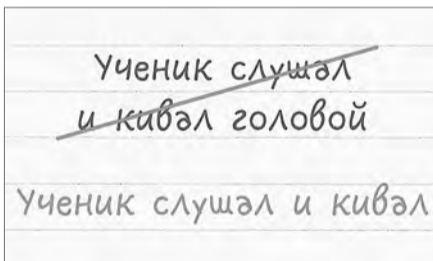 Ученик слушал
и кивал головой
Ученик слушал и кивал